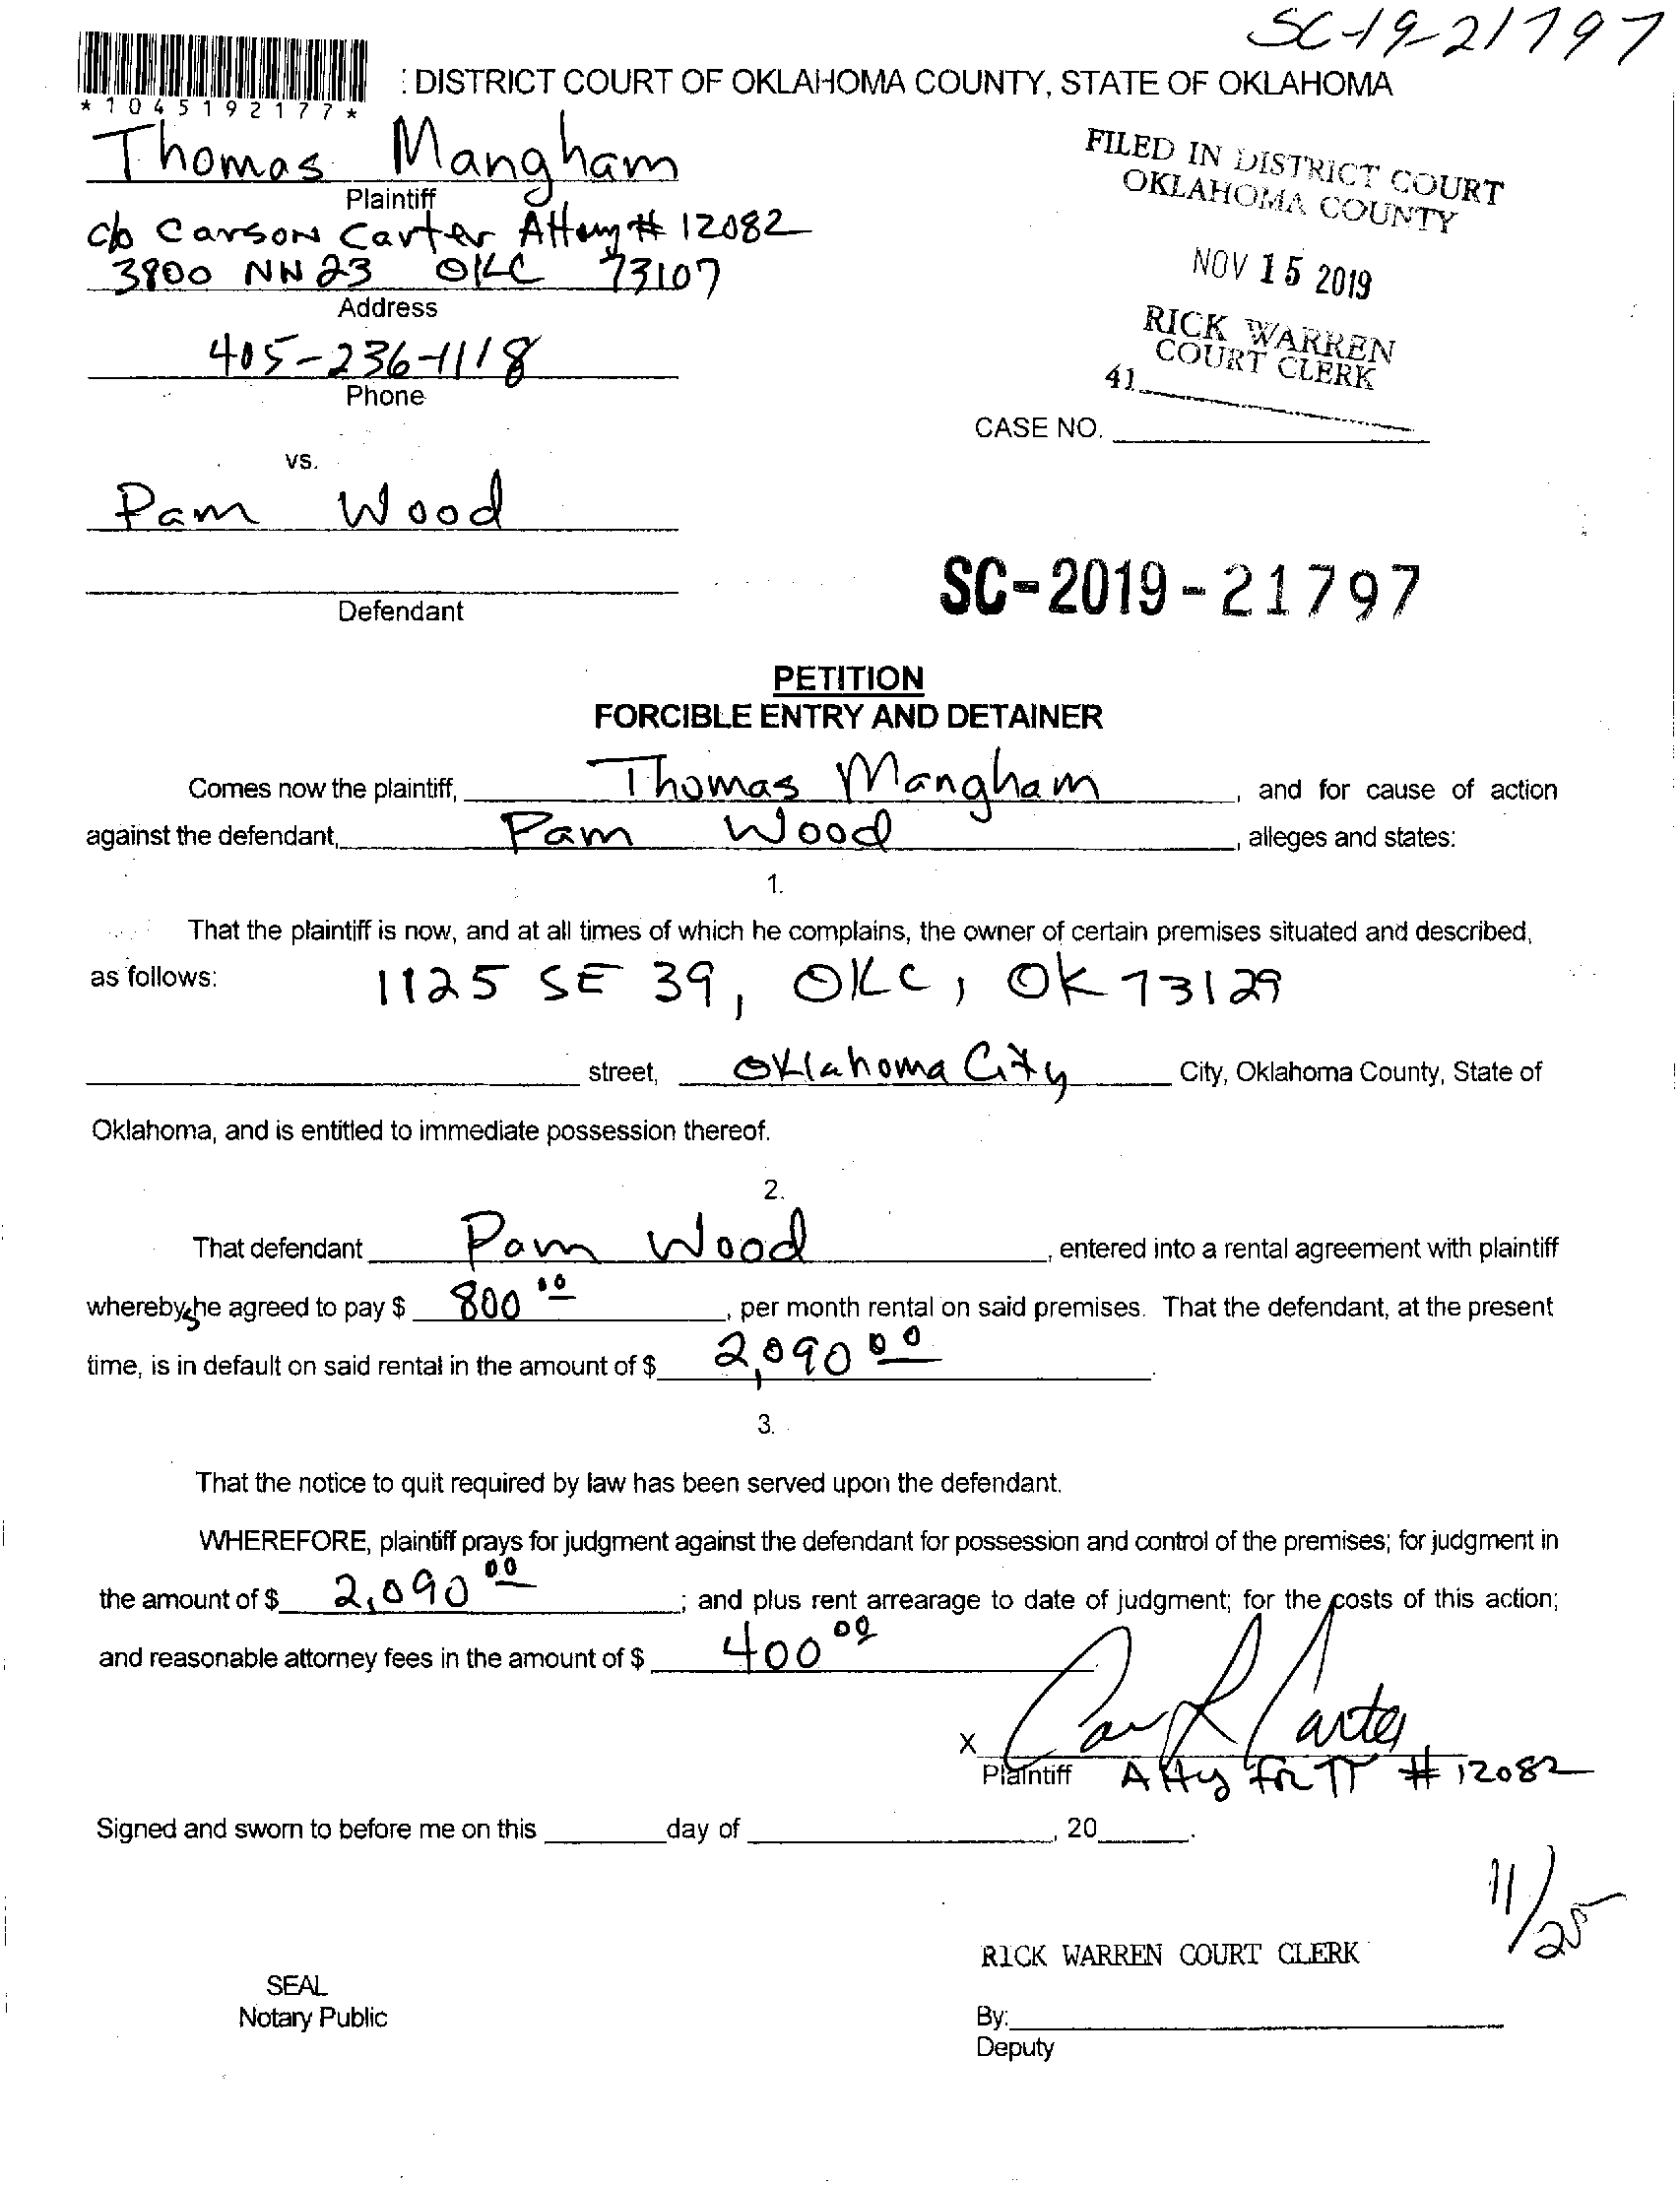 SC-19-21797
: DISTRICT COURT OF OKLAHOMA COUNTY, STATE OF OKLAHOMA
*1045192177*
Thomas Mangham
Plaintiff
c/o Carson Carter Attorny # 12082
3800 NW 23 OKC 73107
Address
405-236-1118
Phone
FILED IN DISTRICT COURT
OKLAHOMA COUNTY
NOV 15 2019
RICK WARREN
COURT CLERK
41
CASE NO.
vs.
Pam Wood
Defendant
SC-2019-21797
PETITION
FORCIBLE ENTRY AND DETAINER
Comes now the plaintiff, Thomas Mangham, and for cause of action
against the defendant, Pam Wood, alleges and states:
1.
That the plaintiff is now, and at all times of which he complains, the owner of certain premises situated and described,
as follows: 1125 SE 39, OKC, OK 73129
street, Oklahoma City City, Oklahoma County, State of
Oklahoma, and is entitled to immediate possession thereof.
2.
That defendant Pam Wood, entered into a rental agreement with plaintiff
whereby she agreed to pay $ 800 00, per month rental on said premises. That the defendant, at the present
time, is in default on said rental in the amount of $ 2,090 00.
3.
That the notice to quit required by law has been served upon the defendant.
WHEREFORE, plaintiff prays for judgment against the defendant for possession and control of the premises; for judgment in
the amount of $ 2,090 00; and plus rent arrearage to date of judgment; for the costs of this action;
and reasonable attorney fees in the amount of $ 400 00
X Car R Carter
Plaintiff Atty for π # 12082
Signed and sworn to before me on this day of , 20 .
11/25
RICK WARREN COURT CLERK
SEAL
Notary Public
By:
Deputy